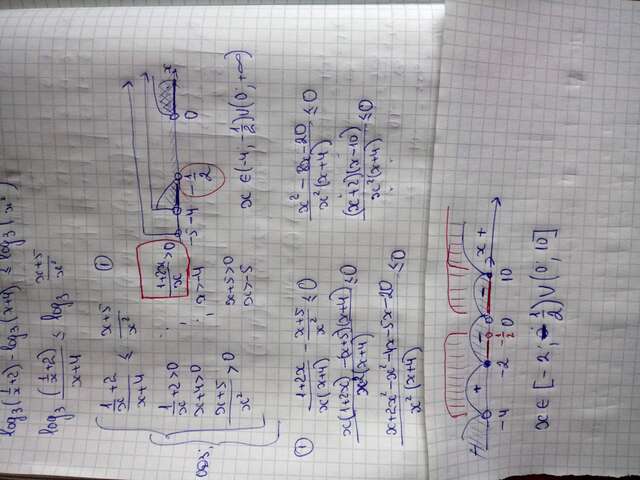 log₃(1/x+2) - log₃(x+4) ≤ log₃( x² )
log₃ (1/x+2)/(x+4) ≤ log₃ (x+5)/x²
(1/x+2)/(x+4) ≤ (x+5)/x² ①
ОДЗ:
1/x+2>0 ; (1+2x)/x>0
x+4>0 ; x>-4
(x+5)/x²>0 x+5>0
x>-5
-5 -4 -1/2 0 x
x ∈(-4; -1/2)∪(0; +∞)
① (1+2x)/(x(x+4)) - (x+5)/x² ≤0
(x(1+2x)-(x+5)(x+4))/(x²(x+4)) ≤0
(x+2x²-x²-4x-5x-20)/(x²(x+4)) ≤0
(x²-8x-20)/(x²(x+4)) ≤0
(x+2)(x-10)/(x²(x+4)) ≤0
+ - - x +
-4 -2 -1/2 0 10
x∈[-2; -1/2)∪(0; 10]